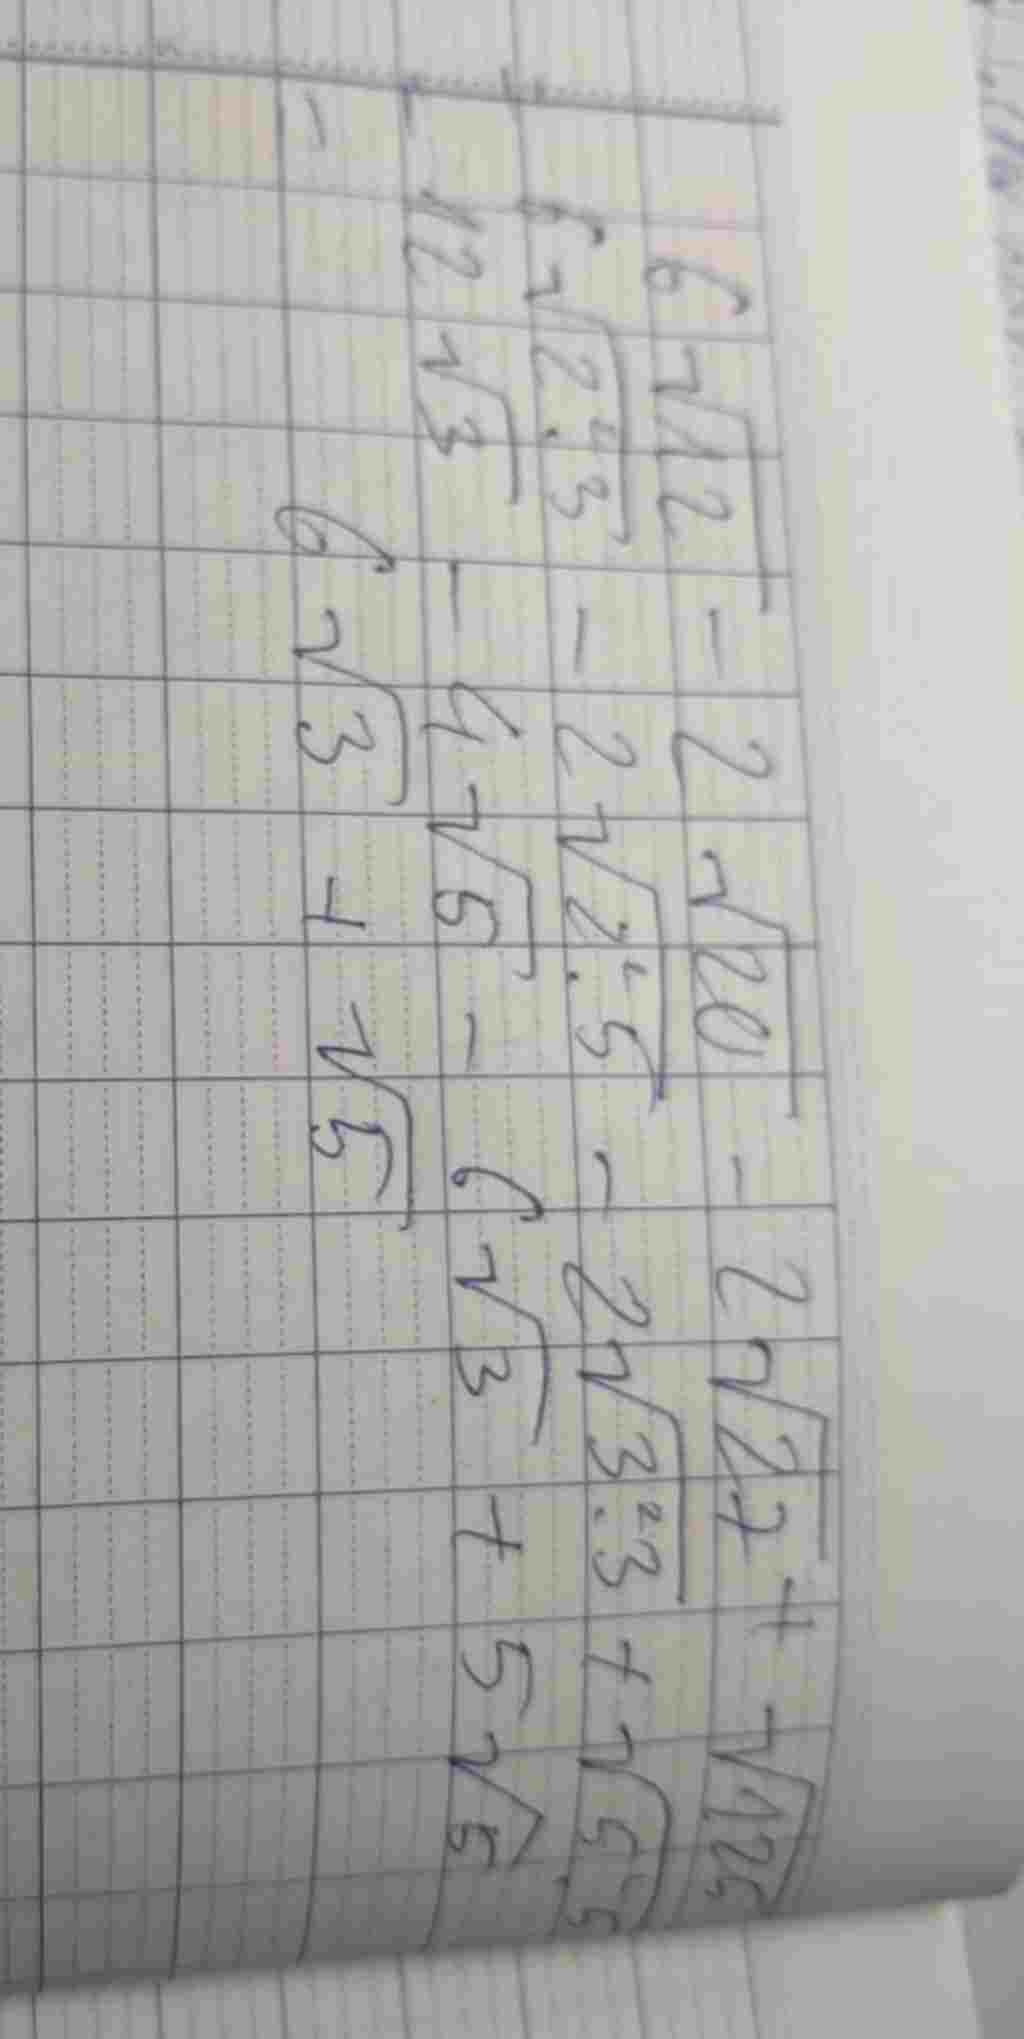 6√12 - 2√20 - 2√27 + √125
6√2².3 - 2√2².5 - 2√3².3 + √5².5
= 12√3 - 4√5 - 6√3 + 5√5
= 6√3 + √5